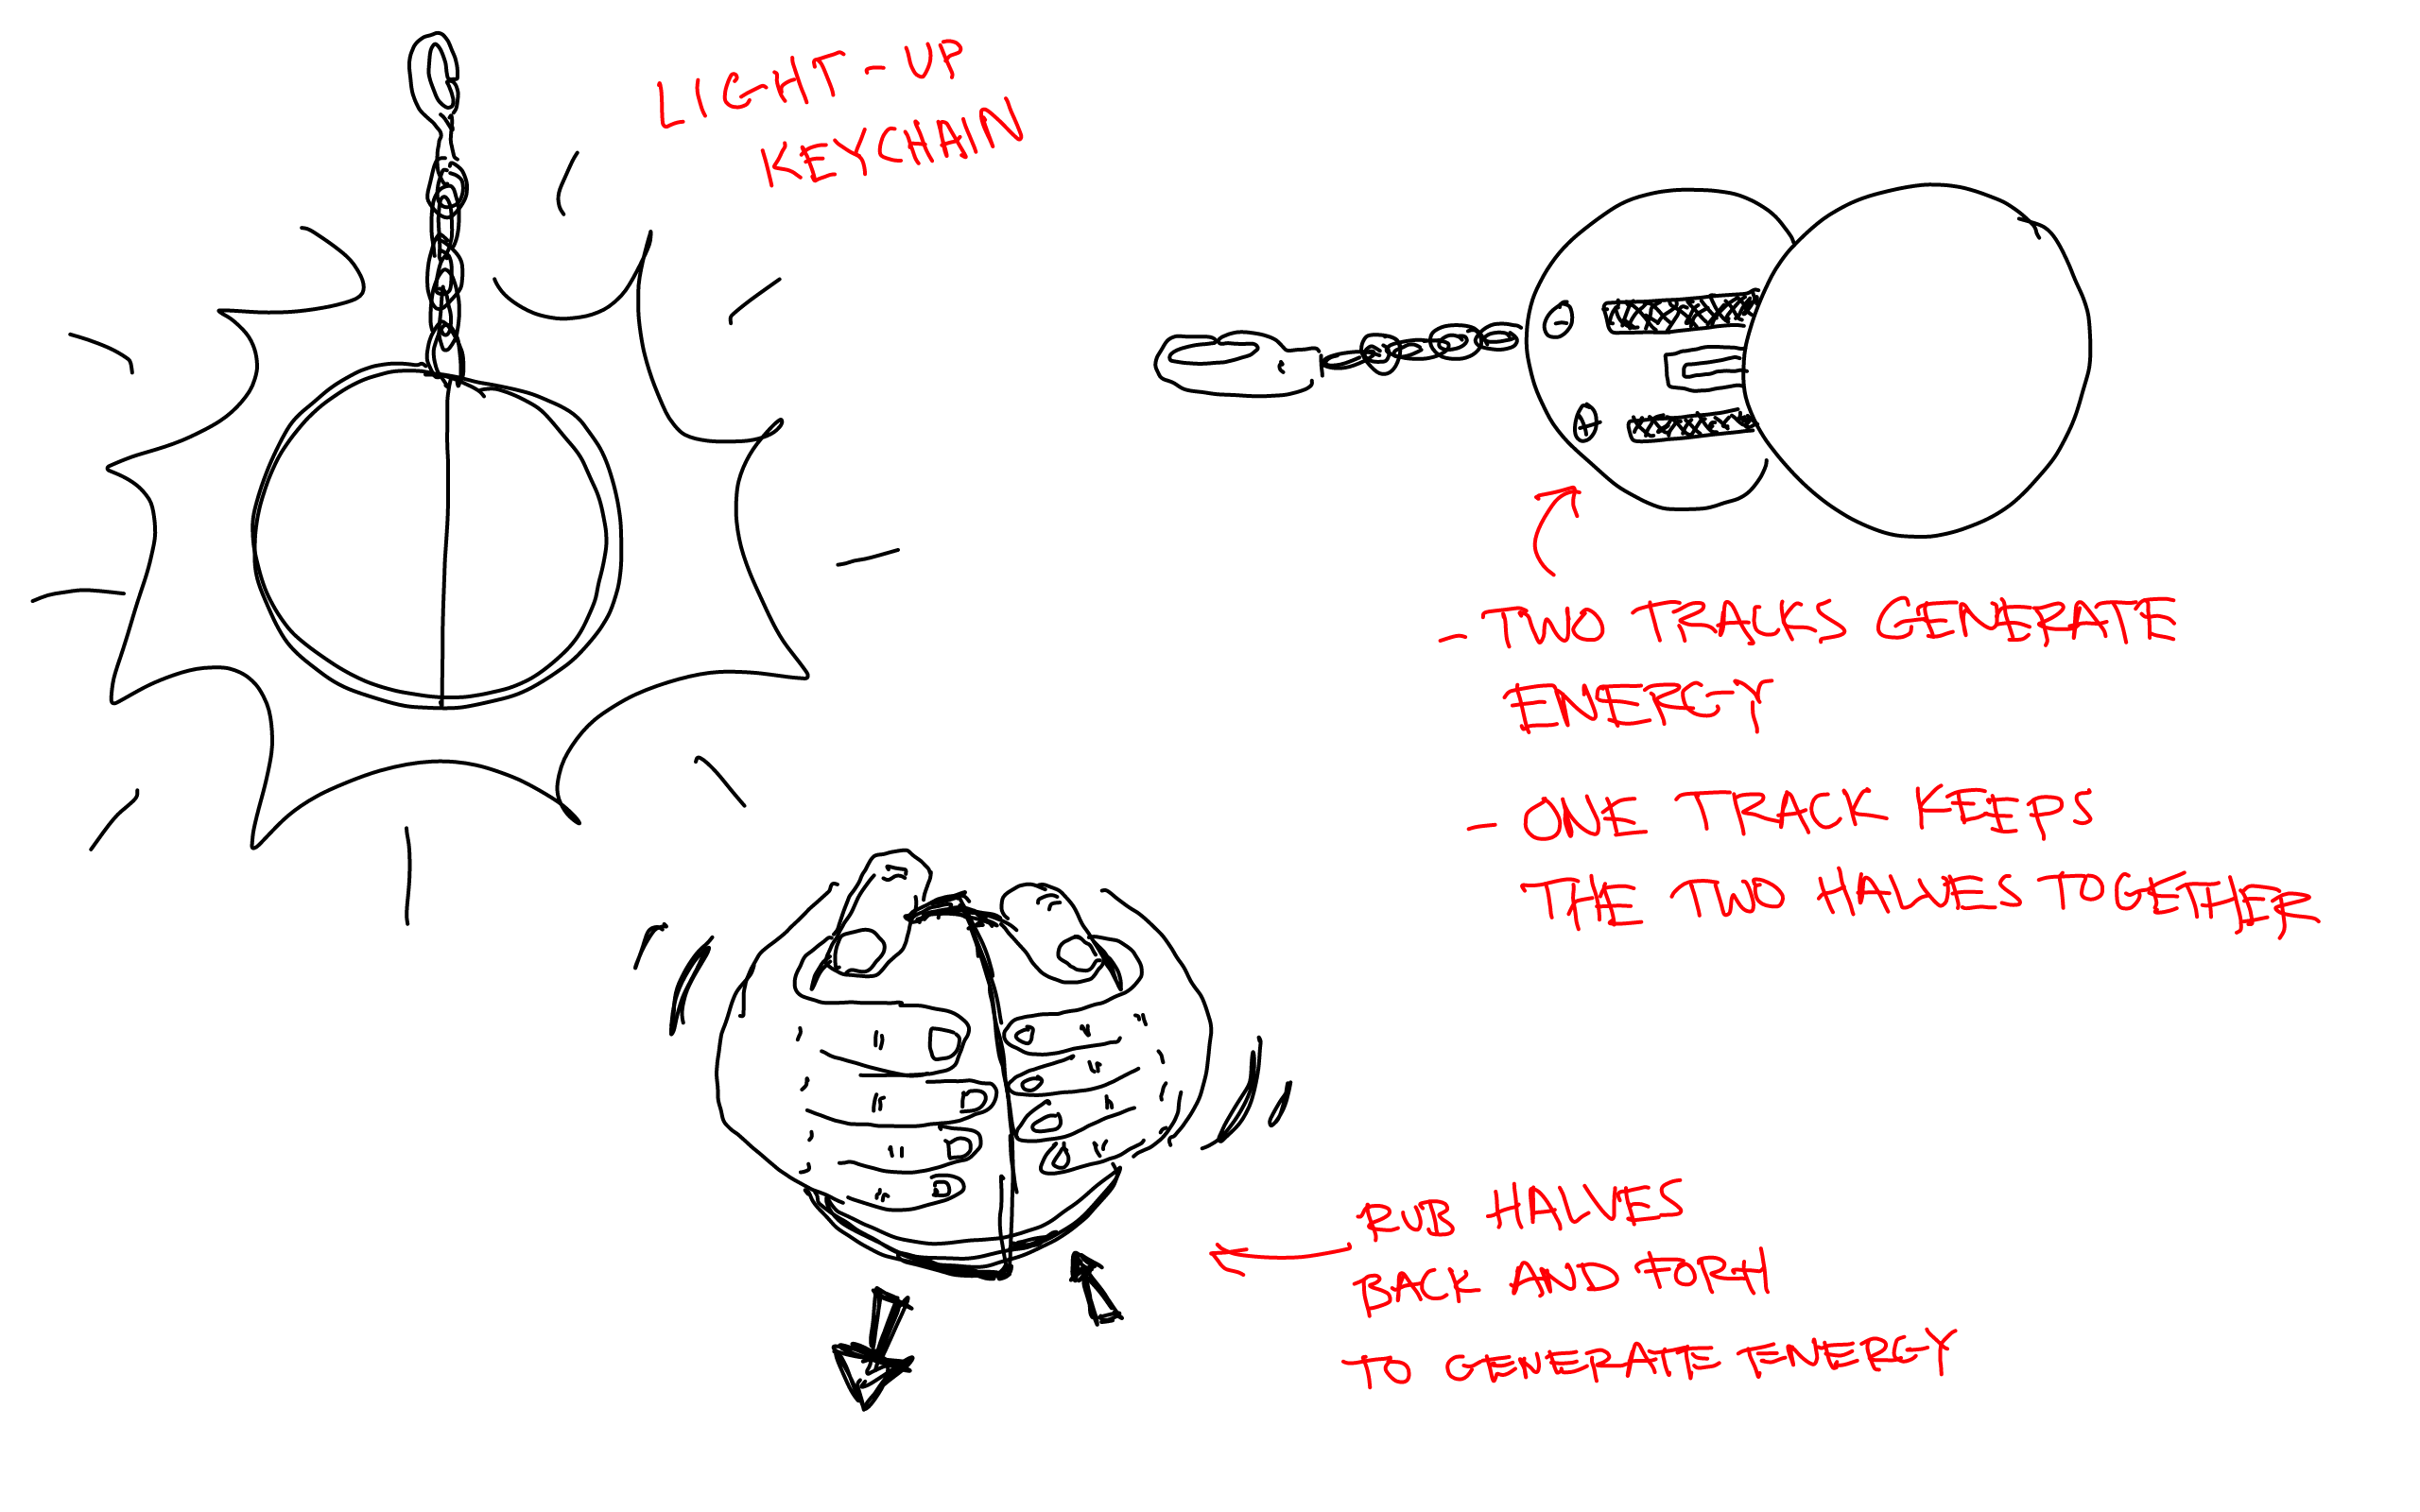 LIGHT-UP
KEYCHAIN
- +
- TWO TRACKS GENERATE
ENERGY
- ONE TRACK KEEPS
THE TWO HALVES TOGETHER
RUB HALVES
BACK AND FORTH
TO GENERATE ENERGY